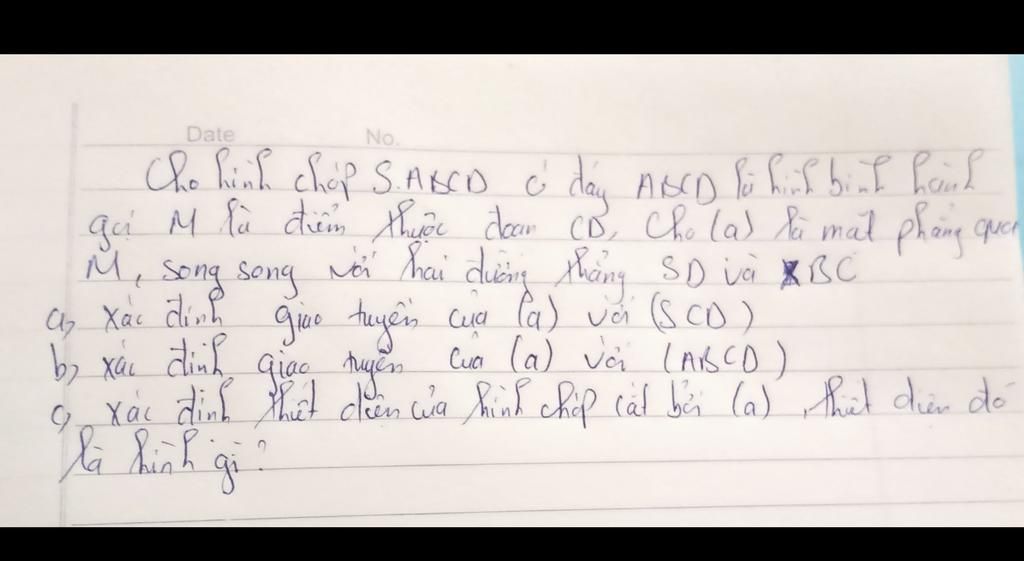 Date No.
Cho hình chóp S.ABCD có đáy ABCD là hình bình hành
gọi M là điểm thuộc đoạn CD, Cho (a) là mặt phẳng qua
M, song song với hai đường thẳng SD và BC
a, xác định giao tuyến của (a) với (SCD)
b, xác định giao tuyến của (a) với (ABCD)
c, xác định thiết diện của hình chóp cắt bởi (a), thiết diện đó
là hình gì?